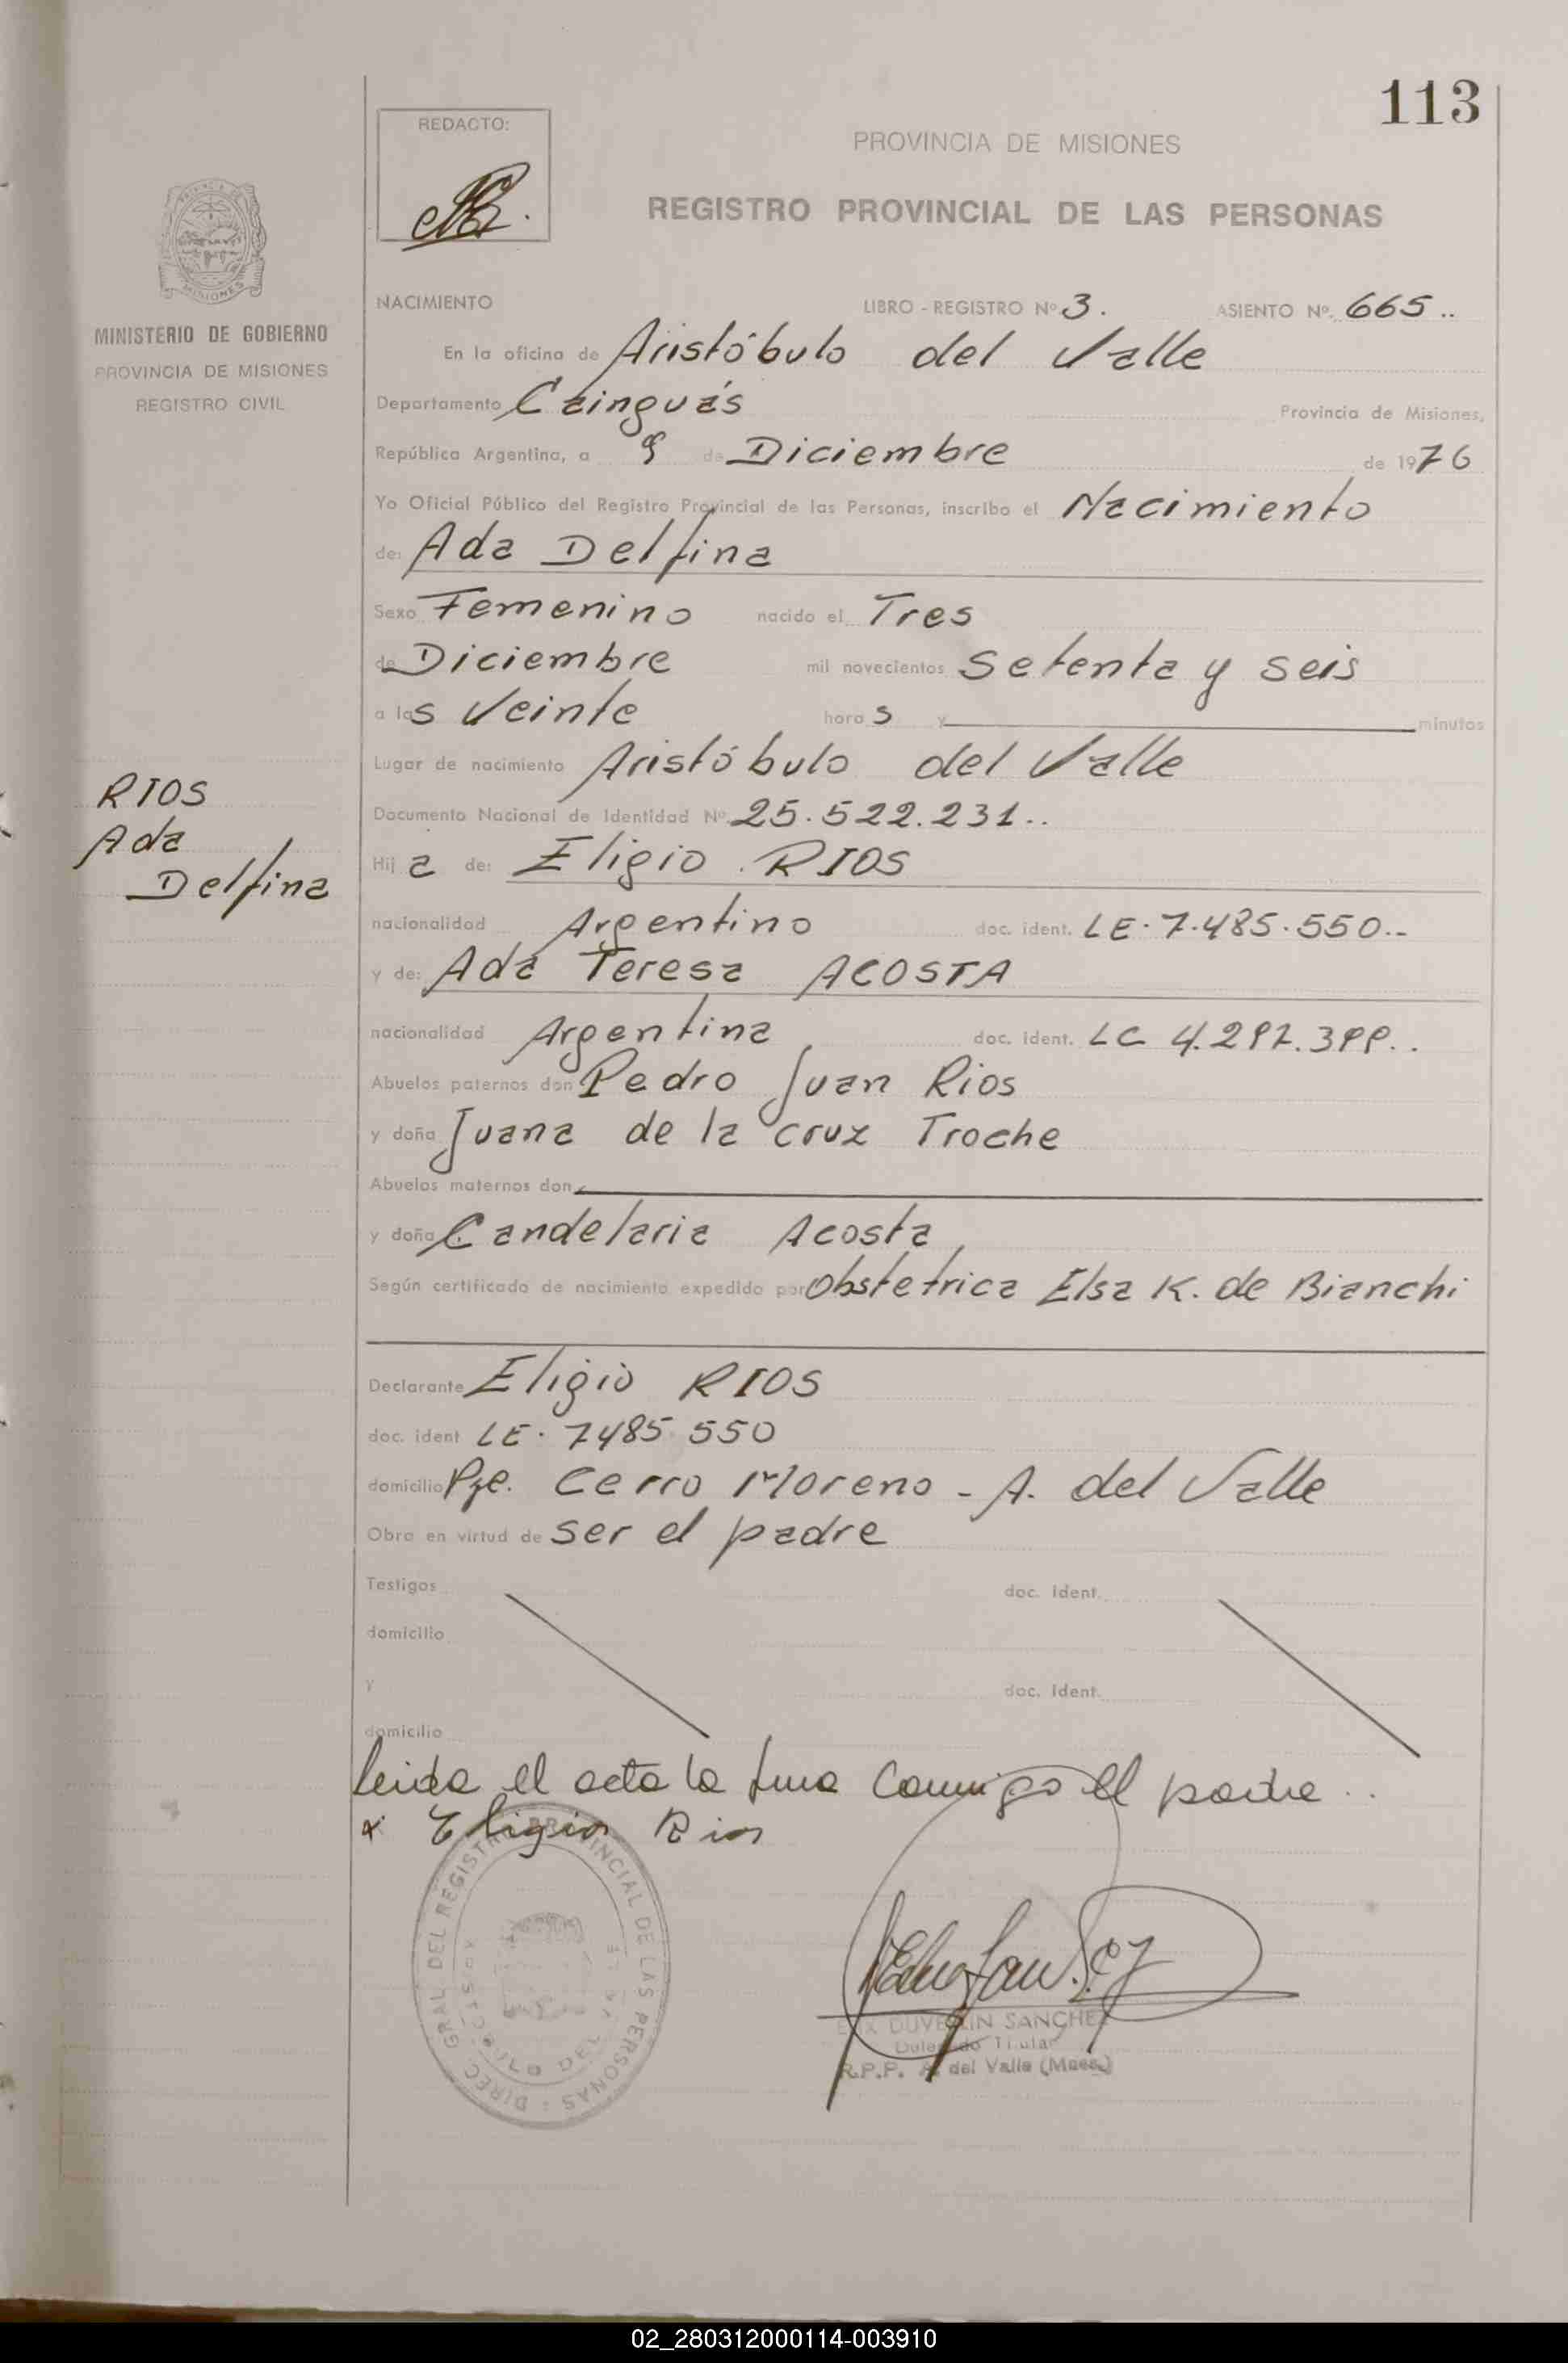 113
REDACTO:
PROVINCIA DE MISIONES
REGISTRO PROVINCIAL DE LAS PERSONAS
MISIONES
MINISTERIO DE GOBIERNO
PROVINCIA DE MISIONES
REGISTRO CIVIL
NACIMIENTO LIBRO - REGISTRO Nº 3. ASIENTO Nº. 665..
En la oficina de Aristóbulo del Valle
Departamento Cainguás Provincia de Misiones,
República Argentina, a 9 de Diciembre de 1976
Yo Oficial Público del Registro Provincial de las Personas, inscribo el Nacimiento
de: Ada Delfina
Sexo Femenino nacido el Tres
de Diciembre mil novecientos setenta y seis
a las Veinte horas y minutos
Lugar de nacimiento Aristóbulo del Valle
RIOS
Ada
Delfina
Documento Nacional de Identidad Nº 25.522.231..
Hija de: Eligio RIOS
nacionalidad Argentino doc. ident. LE. 7.485.550..
y de: Ada Teresa ACOSTA
nacionalidad Argentina doc. ident. LC
Abuelos paternos don Pedro Juan Rios
y doña Juana de la cruz Troche
Abuelos maternos don
y doña Candelaria Acosta
Según certificado de nacimiento expedido por Obstetrica Elsa K. de Bianchi
Declarante Eligio RIOS
doc. ident LE. 7485.550
domicilio Pje. Cerro Moreno - A. del Valle
Obra en virtud de ser el padre
Testigos doc. ident.
domicilio
y doc. ident.
domicilio
leida el acta la firma conmigo el padre..
x Eligio Rios
DIREC. GRAL DEL REGISTRO PROVINCIAL DE LAS PERSONAS
ARISTOBULO DEL VALLE
DUVERLIN SANCHEZ
Delegado Titular
R.P.P. A. del Valle (Mnes.)
02_280312000114-003910